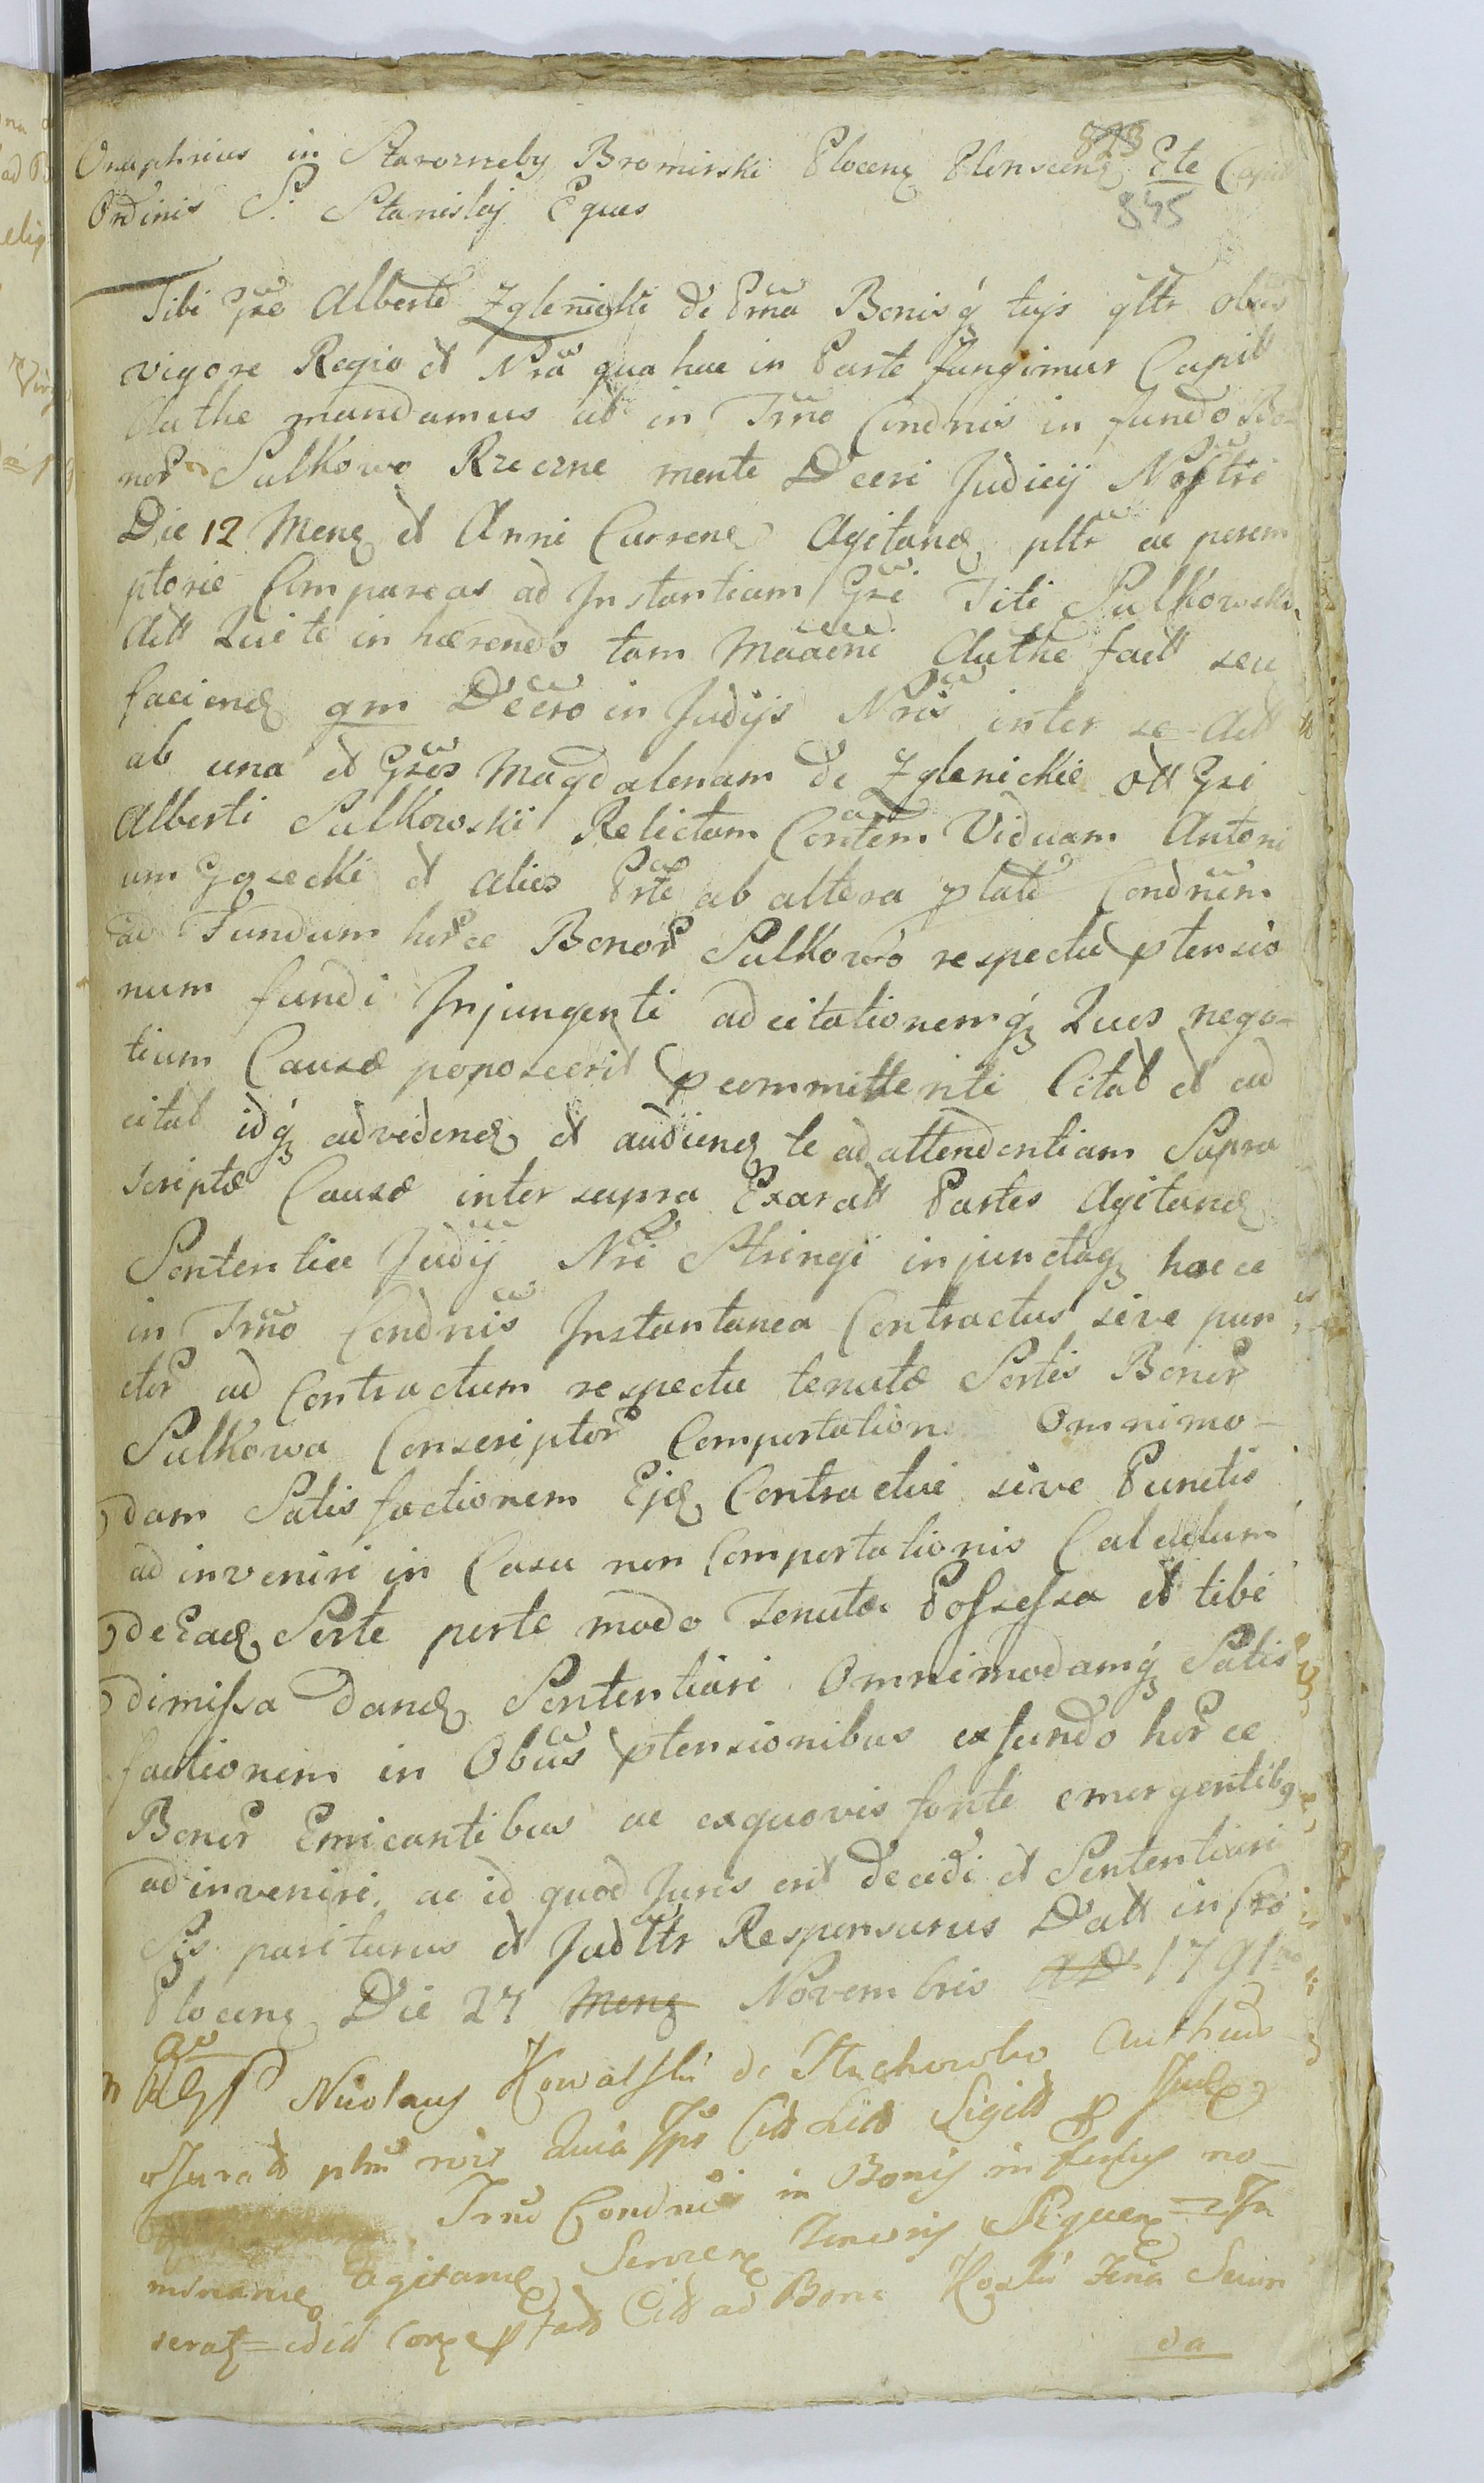 823
Onuphrius in Starorzeby Bromirski Plocenꝫ Plonscenꝫ Etc Capit
Ordinis S. Stanislaj Eques
845
Tibi Gse Alberte Zglenicki de Psna Bonisq tujs gltr obus
vigore Regio et Nra qua hac in Parte fungimur Capitt
Authe mandamus ut in Trno Condnis in fundo Bo-
nor Sulkowo Rzeczne mente Decri Judicij Nostri
Die 12 Menꝫ et Anni Currenꝫ Agitandꝫ pltr ac perem
ptorie Compareas ad Instantiam Gsi Titi Sulkowski
Actt Qui te in hærendo tam Maaeni Authe fatt seu
faciendꝫ qm Decro in Judijs Nris inter se Actt
ab una et Gsos Magdalenam de Zglenickie ott Gsi
Alberti Sulkowski Relictam Contem Viduam Antoni
um Gorzecki et alios Prte ab altera plate Condnem
ad Fundum horce Bonor Sulkowo respectu ptensio
num fundi Injungenti adcitationemqꝫ Quos nego-
tium Causæ poposcerit pcommittenti Citat et ad
citat idqꝫ advidendꝫ et audiendꝫ te ad attendentiam Supra
scriptæ Causæ inter supra Exaratt Partes Agitandꝫ
Sententiæ Judij Nri Stringi injunctaqꝫ hacce
in Trno Condnis Instantanea Contractus sive pun
ctor ad Contractum respectu tenutæ Sortis Bonor
Sulkowa Conscriptor Comportatione Omnimo-
dam Satisfactionem Ejdꝫ Contractui sive Punctis
ad inveniri in Casu non Comportationis Calculum
de Eadꝫ Sorte per te modo Tenutæ Possessa et tibi
dimissa dandꝫ Sententiari Omnimodamqꝫ Satis
factionem in Obus ptensionibus exfundo horce
Bonor Emicantibus ac exquovis fonte emergentibꝫ
adinveniri, ac id quod Juris erit decidi et Sententiari
Sis pariturus et Judltr Responsurus Datt in Cro
Plocenꝫ Die 27 Menꝫ Novembris AD 1791
Nicolaus Kowalski de Stachowko Authus
Juratt Quia Citt Litt Sigitt
Trno Condnis in Bonis
agitandꝫ Sequenꝫ = In
seratꝫ = Citt ad Bona
da